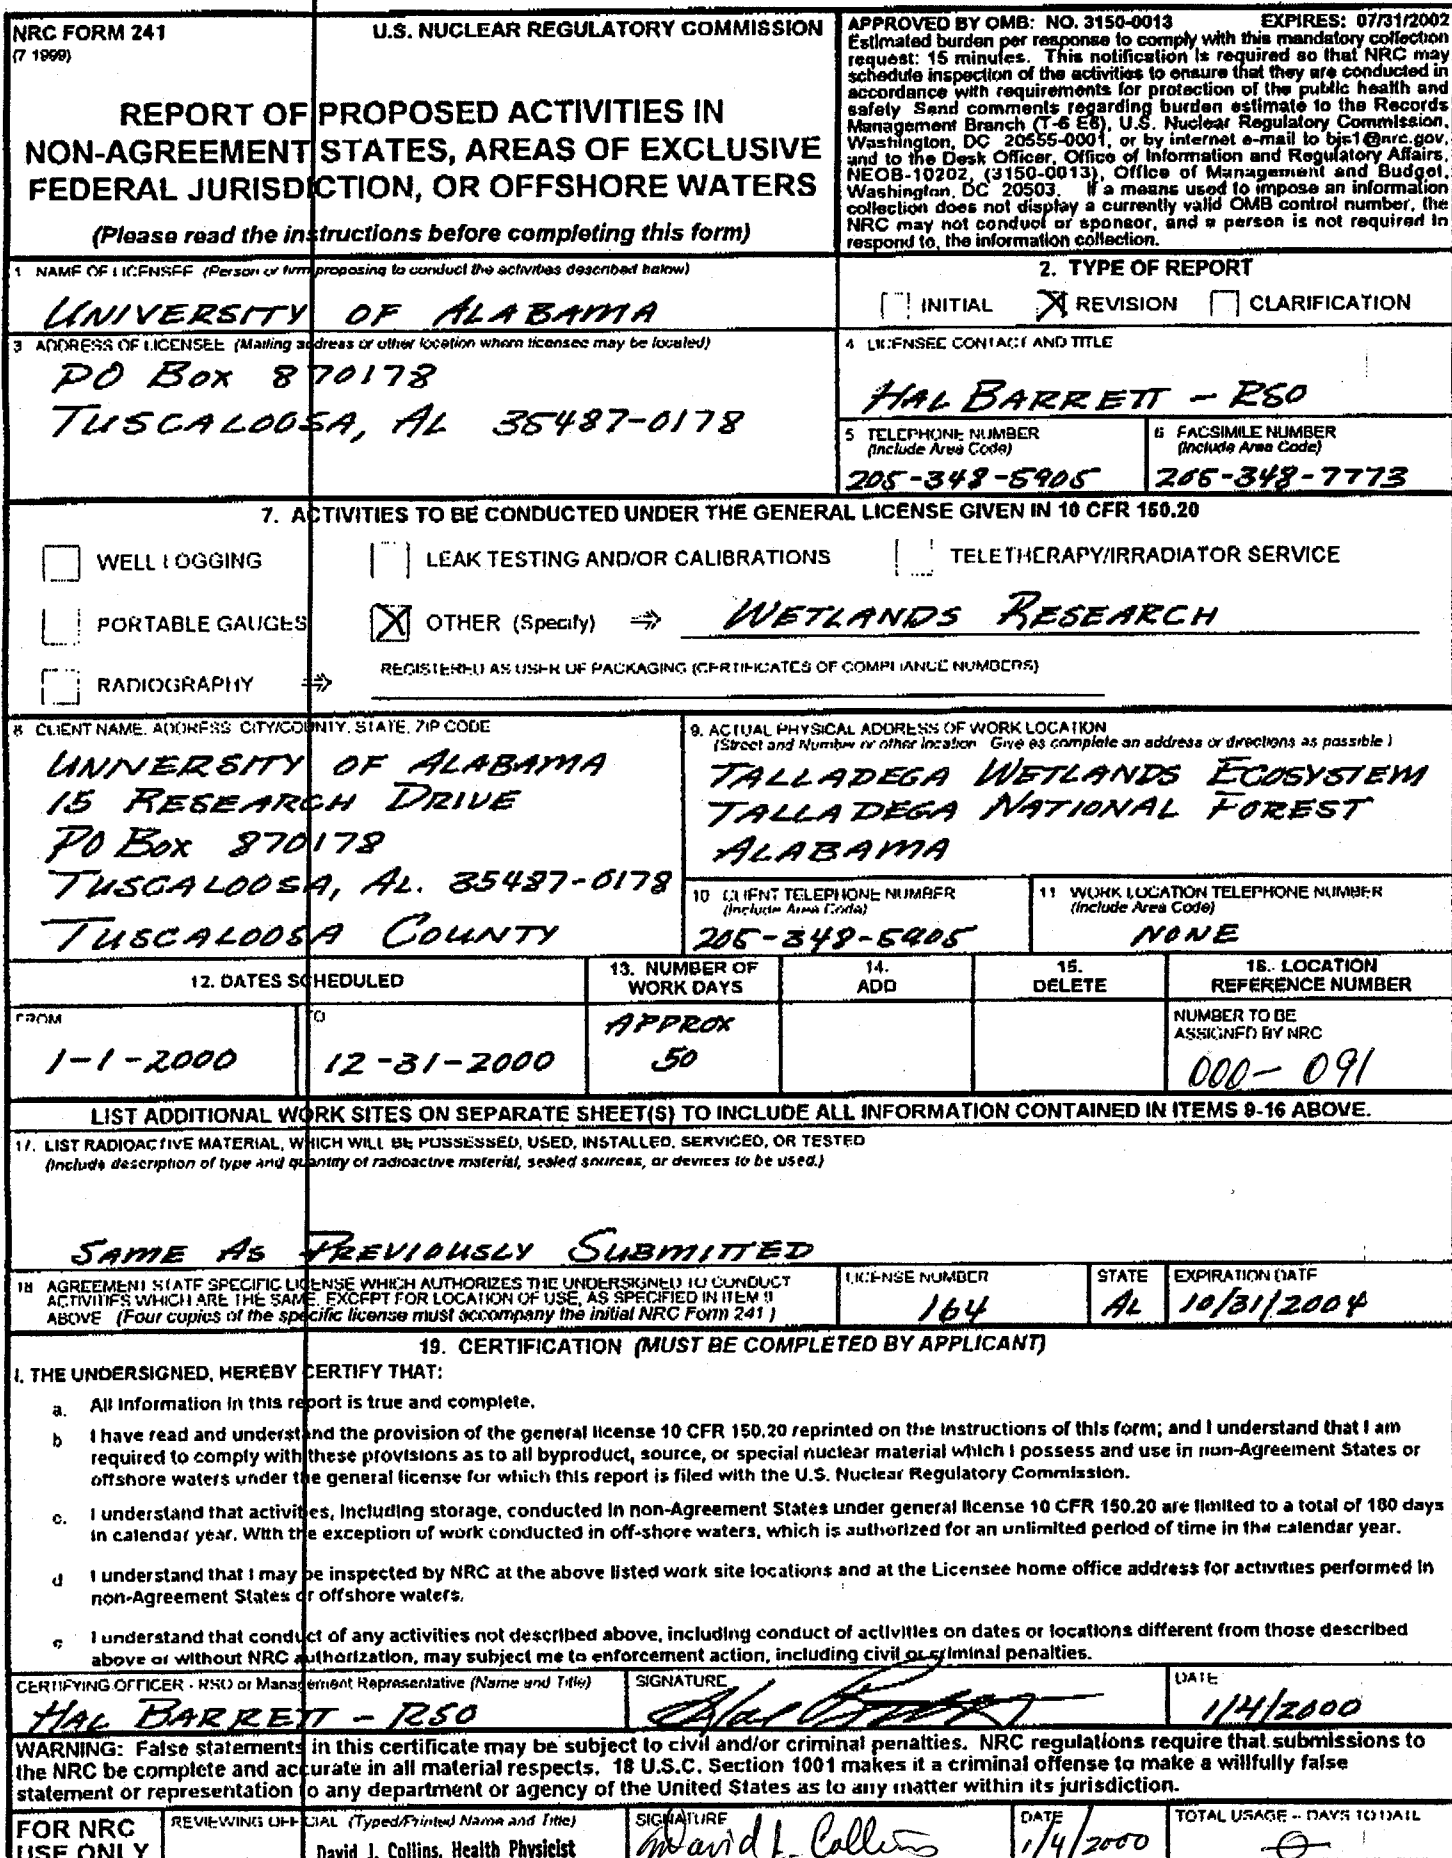 NRC FORM 241
(7 1999)
U.S. NUCLEAR REGULATORY COMMISSION
REPORT OF PROPOSED ACTIVITIES IN
NON-AGREEMENT STATES, AREAS OF EXCLUSIVE
FEDERAL JURISDICTION, OR OFFSHORE WATERS
(Please read the instructions before completing this form)
APPROVED BY OMB: NO. 3150-0013 EXPIRES: 07/31/2002
Estimated burden per response to comply with this mandatory collection
request: 15 minutes. This notification is required so that NRC may
schedule inspection of the activities to ensure that they are conducted in
accordance with requirements for protection of the public health and
safety Send comments regarding burden estimate to the Records
Management Branch (T-6 E6), U.S. Nuclear Regulatory Commission,
Washington, DC 20555-0001, or by internet e-mail to bjs1@nrc.gov,
and to the Desk Officer, Office of Information and Regulatory Affairs,
NEOB-10202, (3150-0013), Office of Management and Budget,
Washington, DC 20503. If a means used to impose an information
collection does not display a currently valid OMB control number, the
NRC may not conduct or sponsor, and a person is not required to
respond to, the information collection.
1 NAME OF LICENSEE (Person or firm proposing to conduct the activities described below)
UNIVERSITY OF ALABAMA
2. TYPE OF REPORT
INITIAL X REVISION CLARIFICATION
3 ADDRESS OF LICENSEE (Mailing address or other location where licensee may be located)
PO BOX 870178
TUSCALOOSA, AL 35487-0178
4 LICENSEE CONTACT AND TITLE
HAL BARRETT - RSO
5 TELEPHONE NUMBER
(Include Area Code)
205-348-5905
6 FACSIMILE NUMBER
(Include Area Code)
205-348-7773
7. ACTIVITIES TO BE CONDUCTED UNDER THE GENERAL LICENSE GIVEN IN 10 CFR 150.20
WELL LOGGING LEAK TESTING AND/OR CALIBRATIONS TELETHERAPY/IRRADIATOR SERVICE
PORTABLE GAUGES X OTHER (Specify) ⇒ WETLANDS RESEARCH
REGISTERED AS USER OF PACKAGING (CERTIFICATES OF COMPLIANCE NUMBERS)
RADIOGRAPHY ⇒
8 CLIENT NAME, ADDRESS CITY/COUNTY, STATE, ZIP CODE
UNIVERSITY OF ALABAMA
15 RESEARCH DRIVE
PO BOX 870178
TUSCALOOSA, AL. 35487-0178
TUSCALOOSA COUNTY
9. ACTUAL PHYSICAL ADDRESS OF WORK LOCATION
(Street and Number or other location Give as complete an address or directions as possible)
TALLADEGA WETLANDS ECOSYSTEM
TALLADEGA NATIONAL FOREST
ALABAMA
10 CLIENT TELEPHONE NUMBER
(Include Area Code)
205-348-5905
11 WORK LOCATION TELEPHONE NUMBER
(Include Area Code)
NONE
12. DATES SCHEDULED
FROM
1-1-2000
TO
12-31-2000
13. NUMBER OF
WORK DAYS
APPROX
50
14.
ADD
15.
DELETE
16. LOCATION
REFERENCE NUMBER
NUMBER TO BE
ASSIGNED BY NRC
000-091
LIST ADDITIONAL WORK SITES ON SEPARATE SHEET(S) TO INCLUDE ALL INFORMATION CONTAINED IN ITEMS 9-16 ABOVE.
17. LIST RADIOACTIVE MATERIAL, WHICH WILL BE POSSESSED, USED, INSTALLED, SERVICED, OR TESTED
(Include description of type and quantity of radioactive material, sealed sources, or devices to be used.)
SAME AS PREVIOUSLY SUBMITTED
18 AGREEMENT STATE SPECIFIC LICENSE WHICH AUTHORIZES THE UNDERSIGNED TO CONDUCT
ACTIVITIES WHICH ARE THE SAME, EXCEPT FOR LOCATION OF USE, AS SPECIFIED IN ITEM 9
ABOVE (Four copies of the specific license must accompany the initial NRC Form 241)
LICENSE NUMBER
164
STATE
AL
EXPIRATION DATE
10/31/2004
19. CERTIFICATION (MUST BE COMPLETED BY APPLICANT)
I, THE UNDERSIGNED, HEREBY CERTIFY THAT:
a. All information in this report is true and complete.
b I have read and understand the provision of the general license 10 CFR 150.20 reprinted on the instructions of this form; and I understand that I am
required to comply with these provisions as to all byproduct, source, or special nuclear material which I possess and use in non-Agreement States or
offshore waters under the general license for which this report is filed with the U.S. Nuclear Regulatory Commission.
c. I understand that activities, including storage, conducted in non-Agreement States under general license 10 CFR 150.20 are limited to a total of 180 days
in calendar year. With the exception of work conducted in off-shore waters, which is authorized for an unlimited period of time in the calendar year.
d I understand that I may be inspected by NRC at the above listed work site locations and at the Licensee home office address for activities performed in
non-Agreement States or offshore waters.
e I understand that conduct of any activities not described above, including conduct of activities on dates or locations different from those described
above or without NRC authorization, may subject me to enforcement action, including civil or criminal penalties.
CERTIFYING OFFICER - RSO or Management Representative (Name and Title)
HAL BARRETT - RSO
SIGNATURE
Hal Barrett
DATE
1/4/2000
WARNING: False statements in this certificate may be subject to civil and/or criminal penalties. NRC regulations require that submissions to
the NRC be complete and accurate in all material respects. 18 U.S.C. Section 1001 makes it a criminal offense to make a willfully false
statement or representation to any department or agency of the United States as to any matter within its jurisdiction.
FOR NRC
USE ONLY
REVIEWING OFFICIAL (Typed/Printed Name and Title)
David J. Collins, Health Physicist
SIGNATURE
David J. Collins
DATE
1/4/2000
TOTAL USAGE -- DAYS TO DATE
0